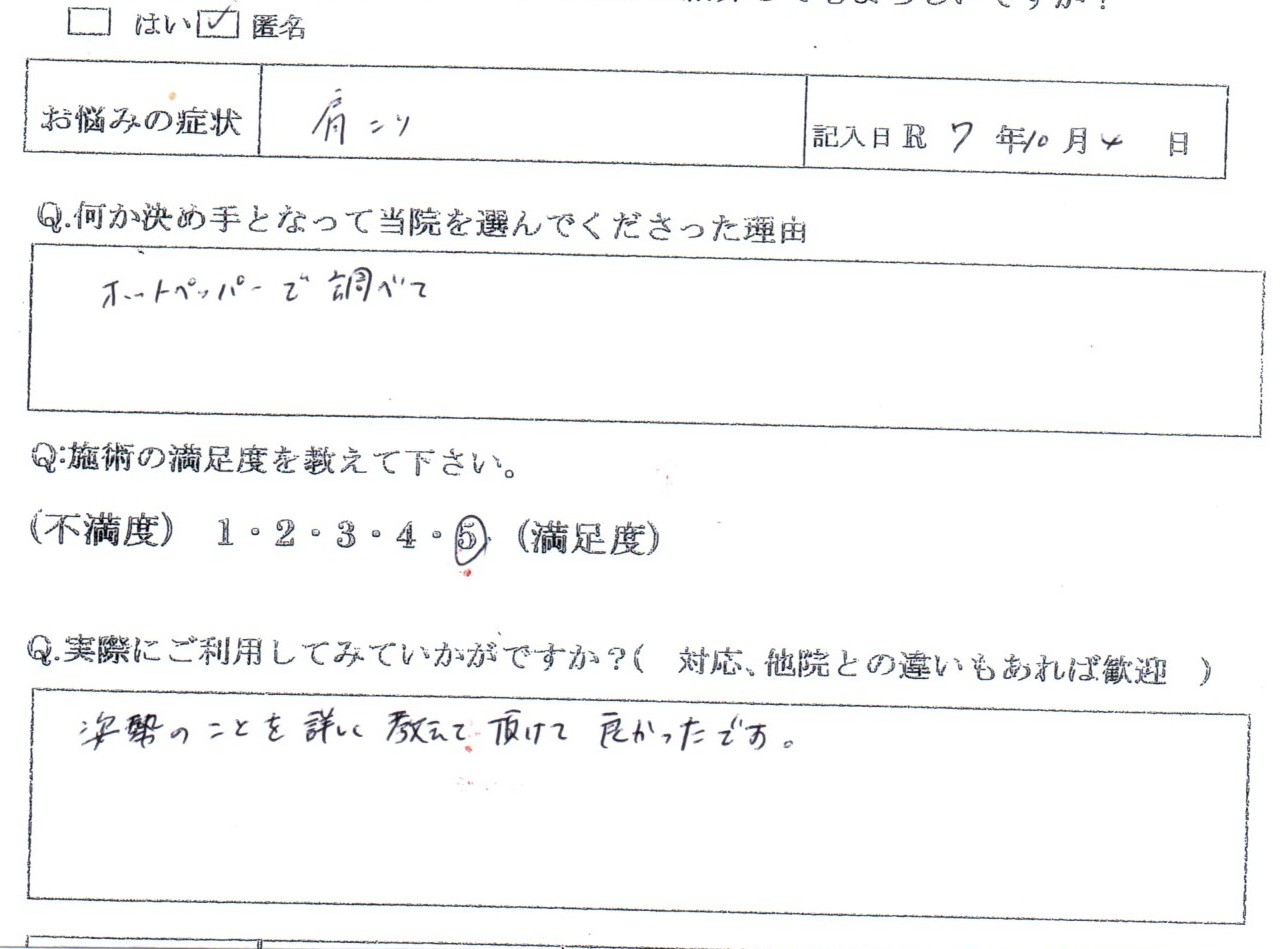 はい 匿名
お悩みの症状 肩こり 記入日R 7 年10月4 日
Q.何か決め手となって当院を選んでくださった理由
ホットペッパーで調べて
Q:施術の満足度を教えて下さい。
(不満度) 1・2・3・4・5 (満足度)
Q.実際にご利用してみていかがですか?( 対応、他院との違いもあれば歓迎 )
姿勢のことを詳しく教えて頂けて良かったです。